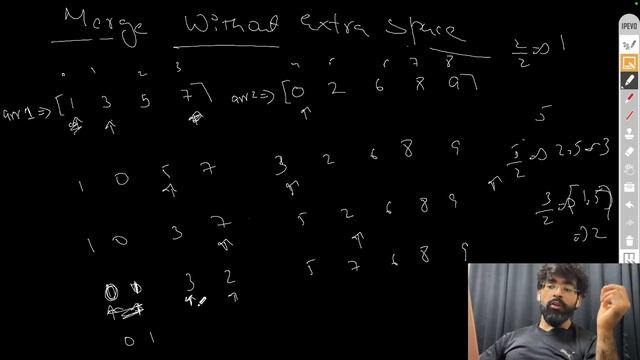 Merge Without extra space
0 1 2 3 4 5 6 7 8
arr1 => [1 3 5 7] arr2 => [0 2 6 8 9]
2/2 => 1
5
1 0 5 7 3 2 6 8 9
5/2 => 2.5 => 3
1 0 3 7 5 2 6 8 9
3/2 => [1.5]
=> 2
0 1 3 2 5 7 6 8 9
0 1
IPEVO